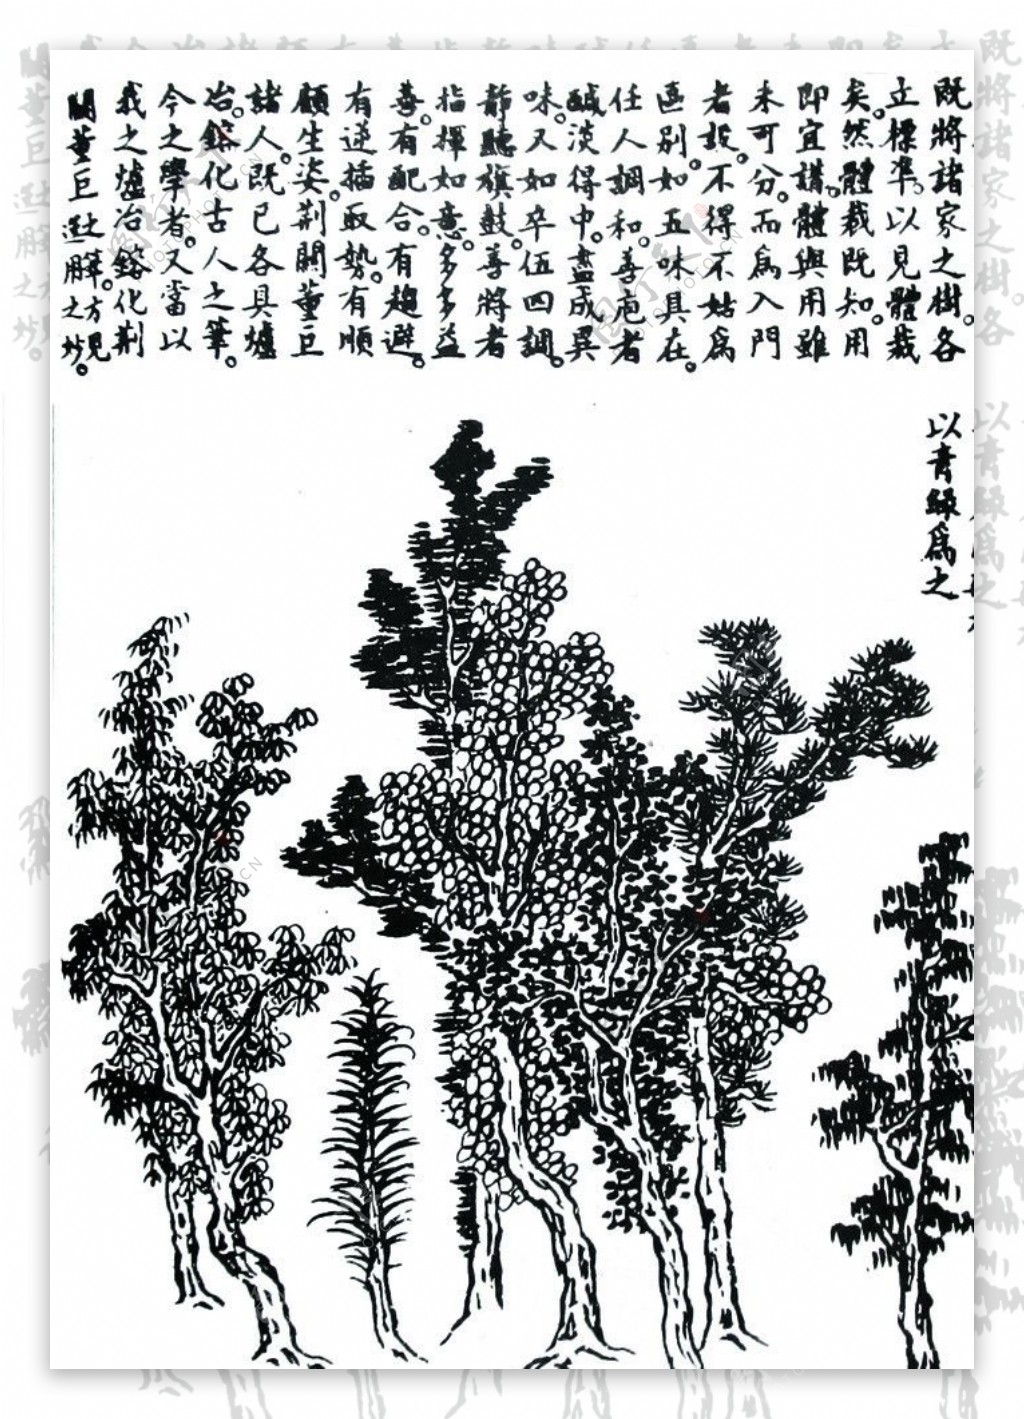 既將諸家之樹。各
立標準。以見體裁
矣。然體裁既知。用
即宜講。體與用雖
未可分。而為入門
者設。不得不姑為
區別。如五味具在。
任人調和。善庖者
醎淡得中。盡成異
味。又如卒伍四調。
靜聽旗鼓。善將者
指揮如意。多多益
善。有配合。有趨避。
有逆插取勢。有順
顧生姿。荆關董巨
諸人。既已各具爐
冶。鎔化古人之筆。
今之學者。又當以
我之爐冶鎔化荆
關董巨
以青綠為之